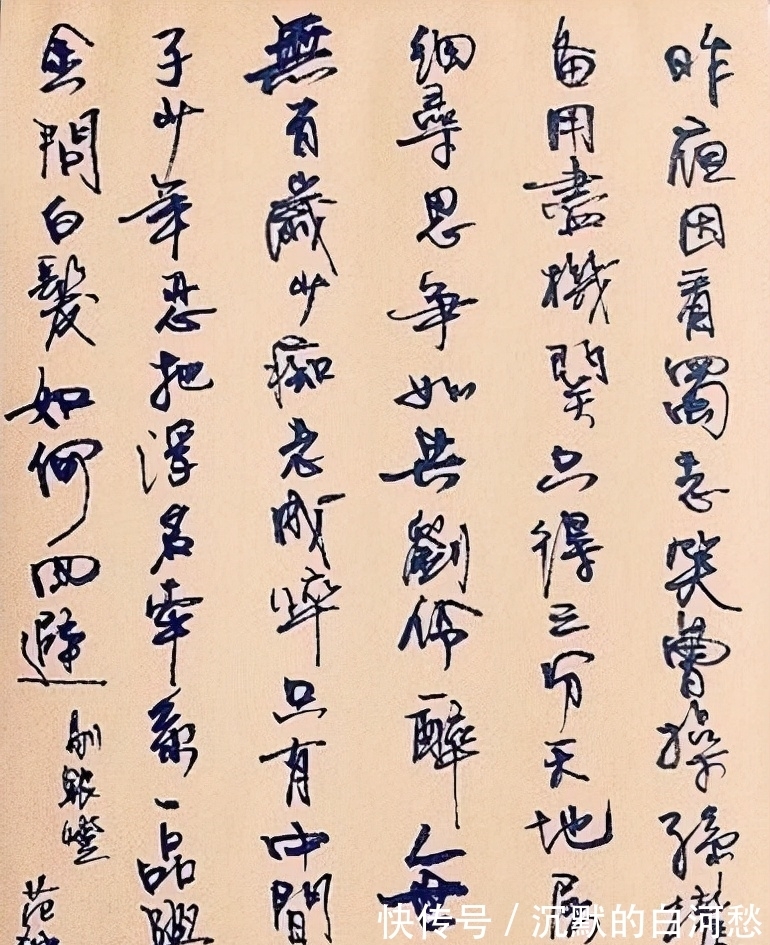 昨夜因看蜀志笑曹操孫權
备用盡機關只得三分天地屈
細尋思争如共劉伶一醉人世
無百歲少痴老成悴只有中間
子少年忍把浮名牽系一品與
金問白髮如何回避
剔銀燈
范仲
快传号 / 沉默的白河愁